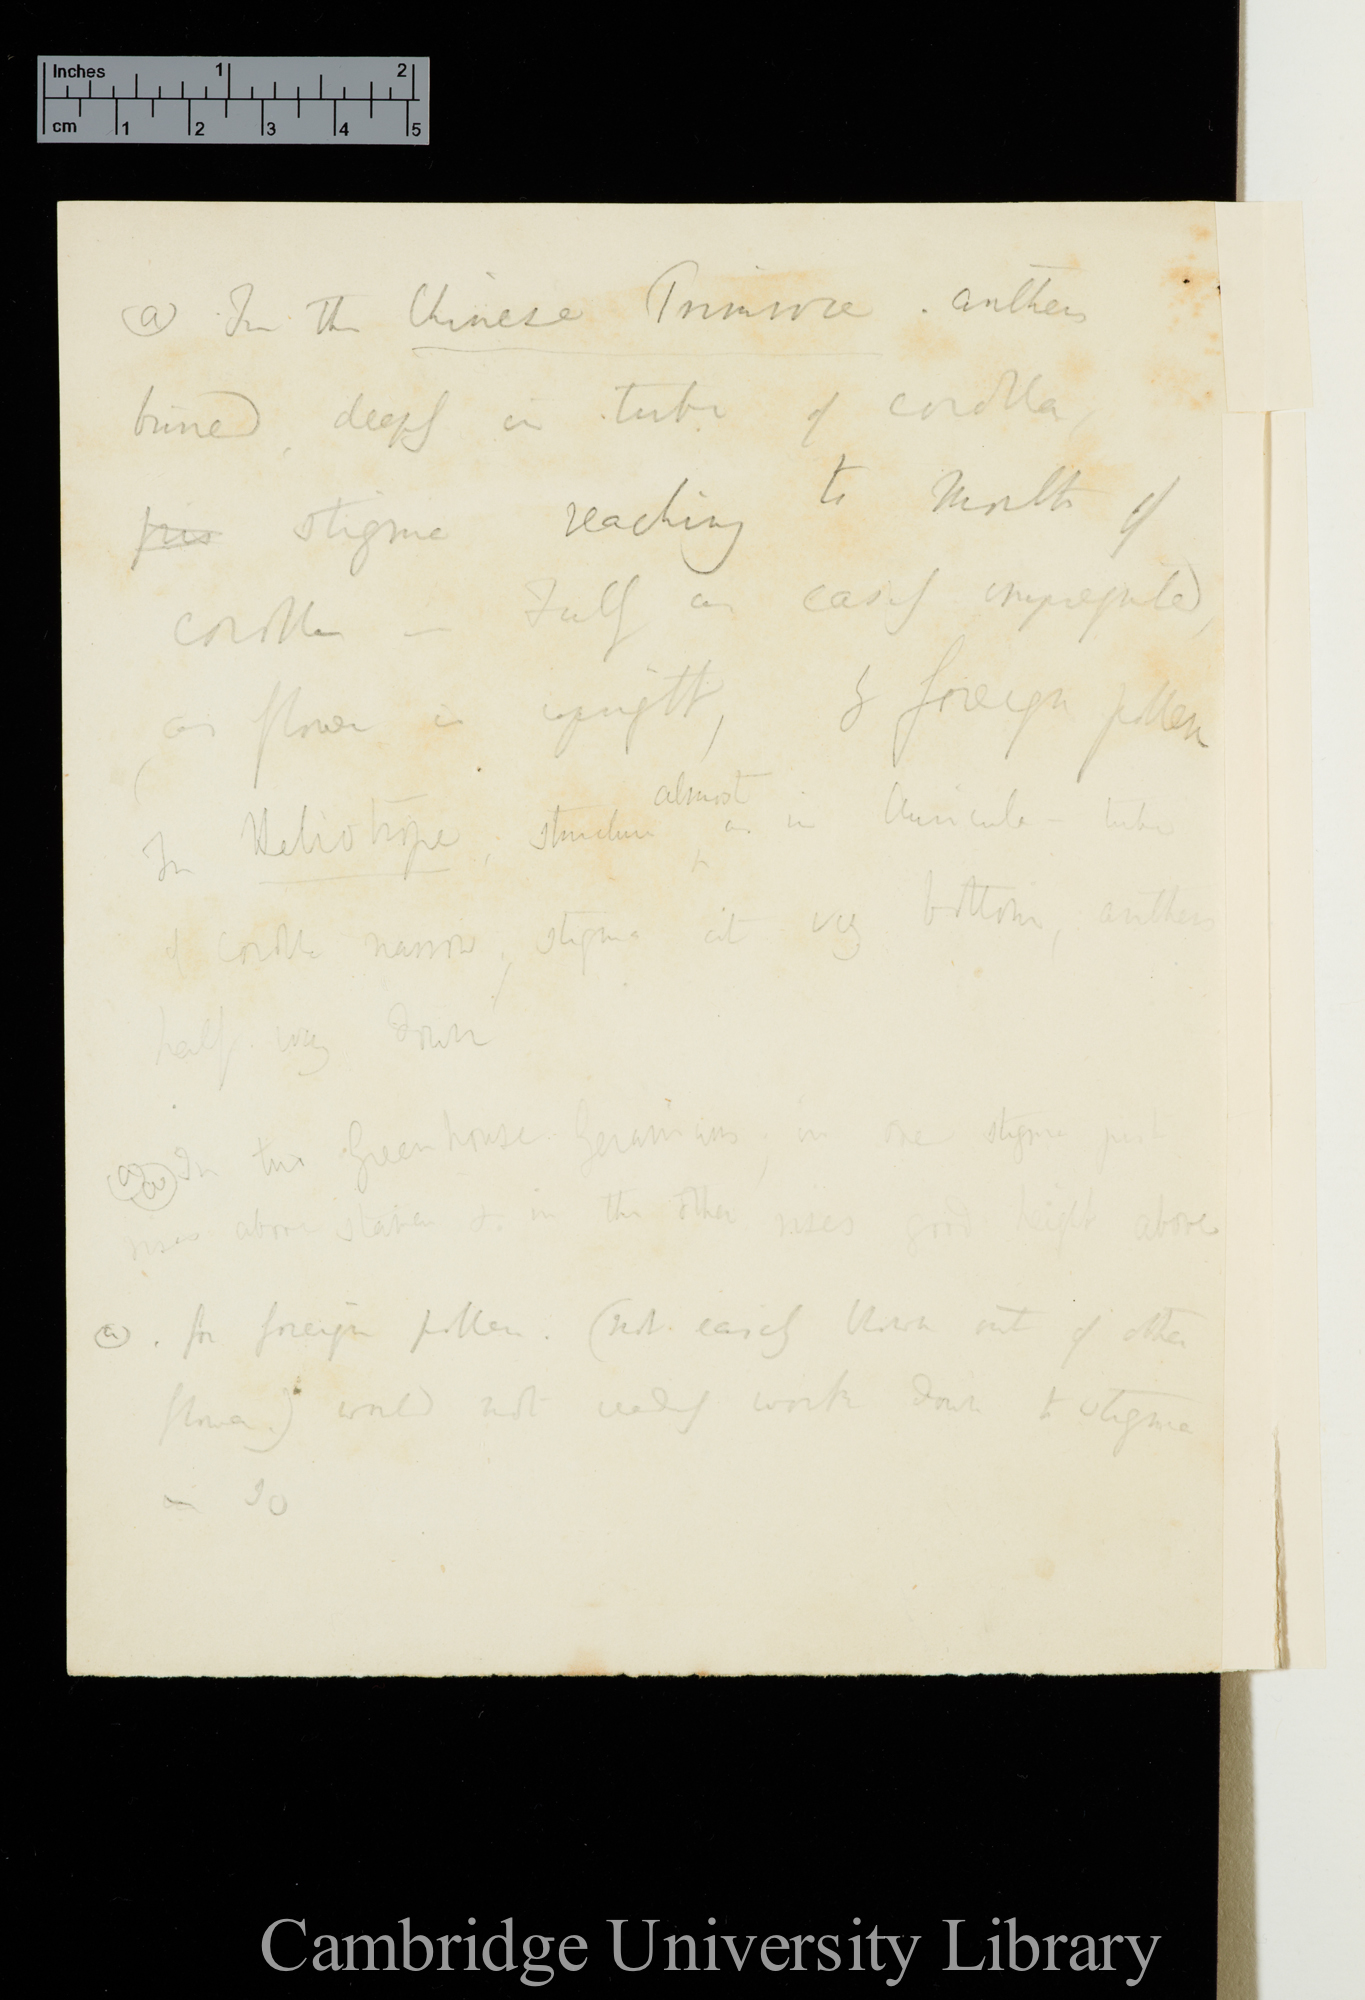 Inches 1 2
cm 1 2 3 4 5
(a) In the Chinese Primrose. anthers
buried, deeply in tube of corolla,
stigma reaching to mouth of
corolla — Fully as easily impregnated,
as flower is upright, by foreign pollen
In Heliotrope, structure almost as in Auricula — tube
of corolla narrow, stigma at very bottom, anthers
half way down
(a)(a) In two Greenhouse Geraniums, in one stigma just
rises above stamen & in the other rises good height above
(a). for foreign pollen. (not easily blown out of other
flower) would not easily work down to stigma
so
Cambridge University Library